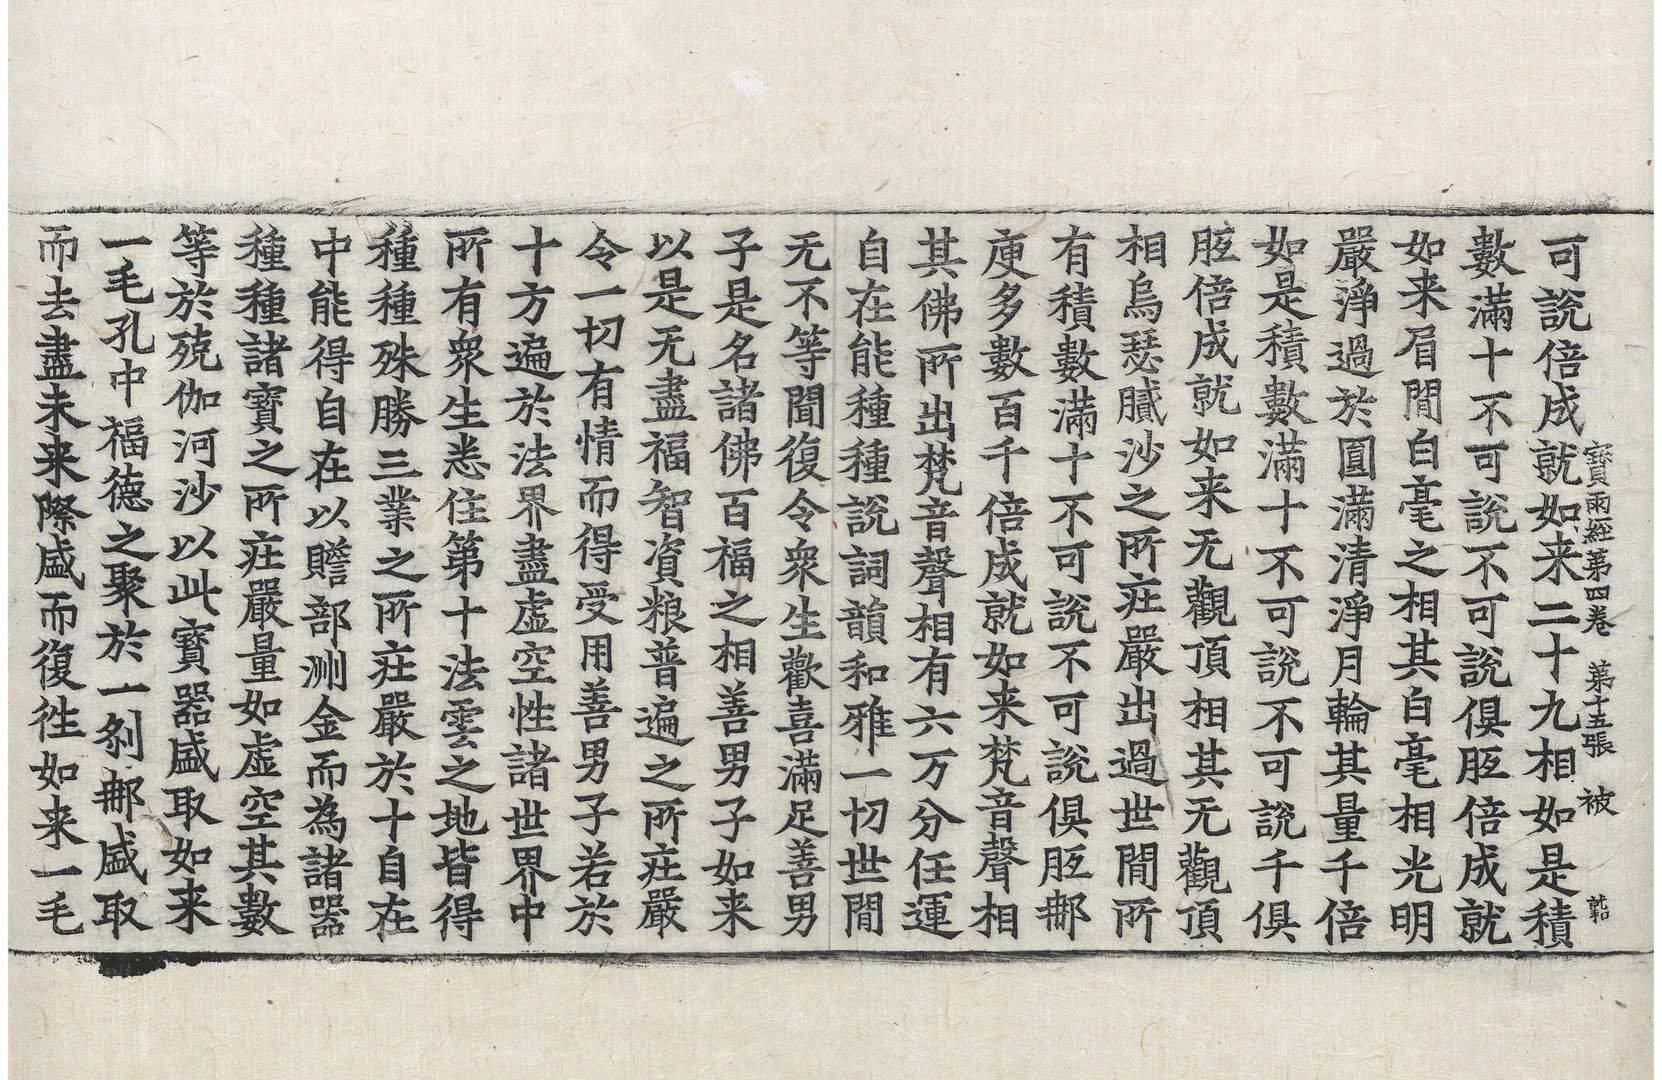 寳雨經第四卷 第十五張 被
可說倍成就如来二十九相如是積
數滿十不可說不可說俱胝倍成就
如来眉間白毫之相其白毫相光明
嚴淨過於圓滿清淨月輪其量千倍
如是積數滿十不可說不可說千俱
胝倍成就如来无觀頂相其无觀頂
相烏瑟膩沙之所庄嚴出過世間所
有積數滿十不可說不可說俱胝郍
庾多數百千倍成就如来梵音聲相
其佛所出梵音聲相有六万分任運
自在能種種說詞韻和雅一切世間
无不等聞復令衆生歡喜滿足善男
子是名諸佛百福之相善男子如来
以是无盡福智資粮普遍之所庄嚴
令一切有情而得受用善男子若於
十方遍於法界盡虛空性諸世界中
所有衆生悉住第十法雲之地皆得
種種殊勝三業之所庄嚴於十自在
中能得自在以贍部洲金而為諸器
種種諸寶之所庄嚴量如虛空其數
等於殑伽河沙以此寶器盛取如来
一毛孔中福德之聚於一刹郍盛取
而去盡未来際盛而復徃如来一毛